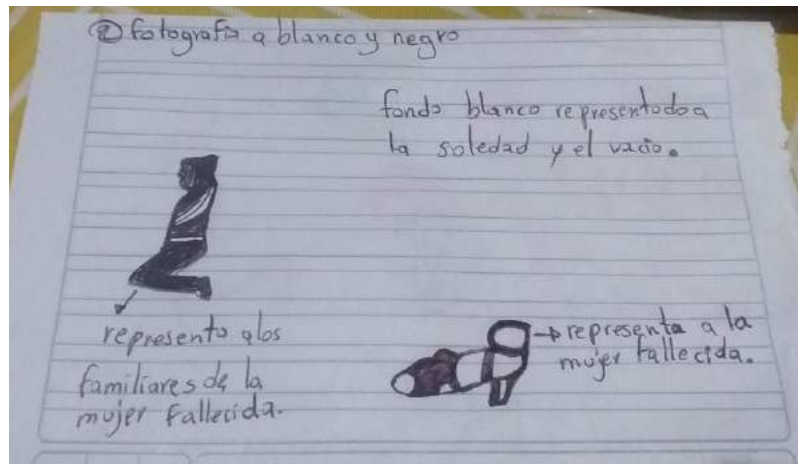 ② fotografía a blanco y negro
fondo blanco representodo a
la soledad y el vacio.
represento a los
familiares de la
mujer fallecida.
representa a la
mujer fallecida.